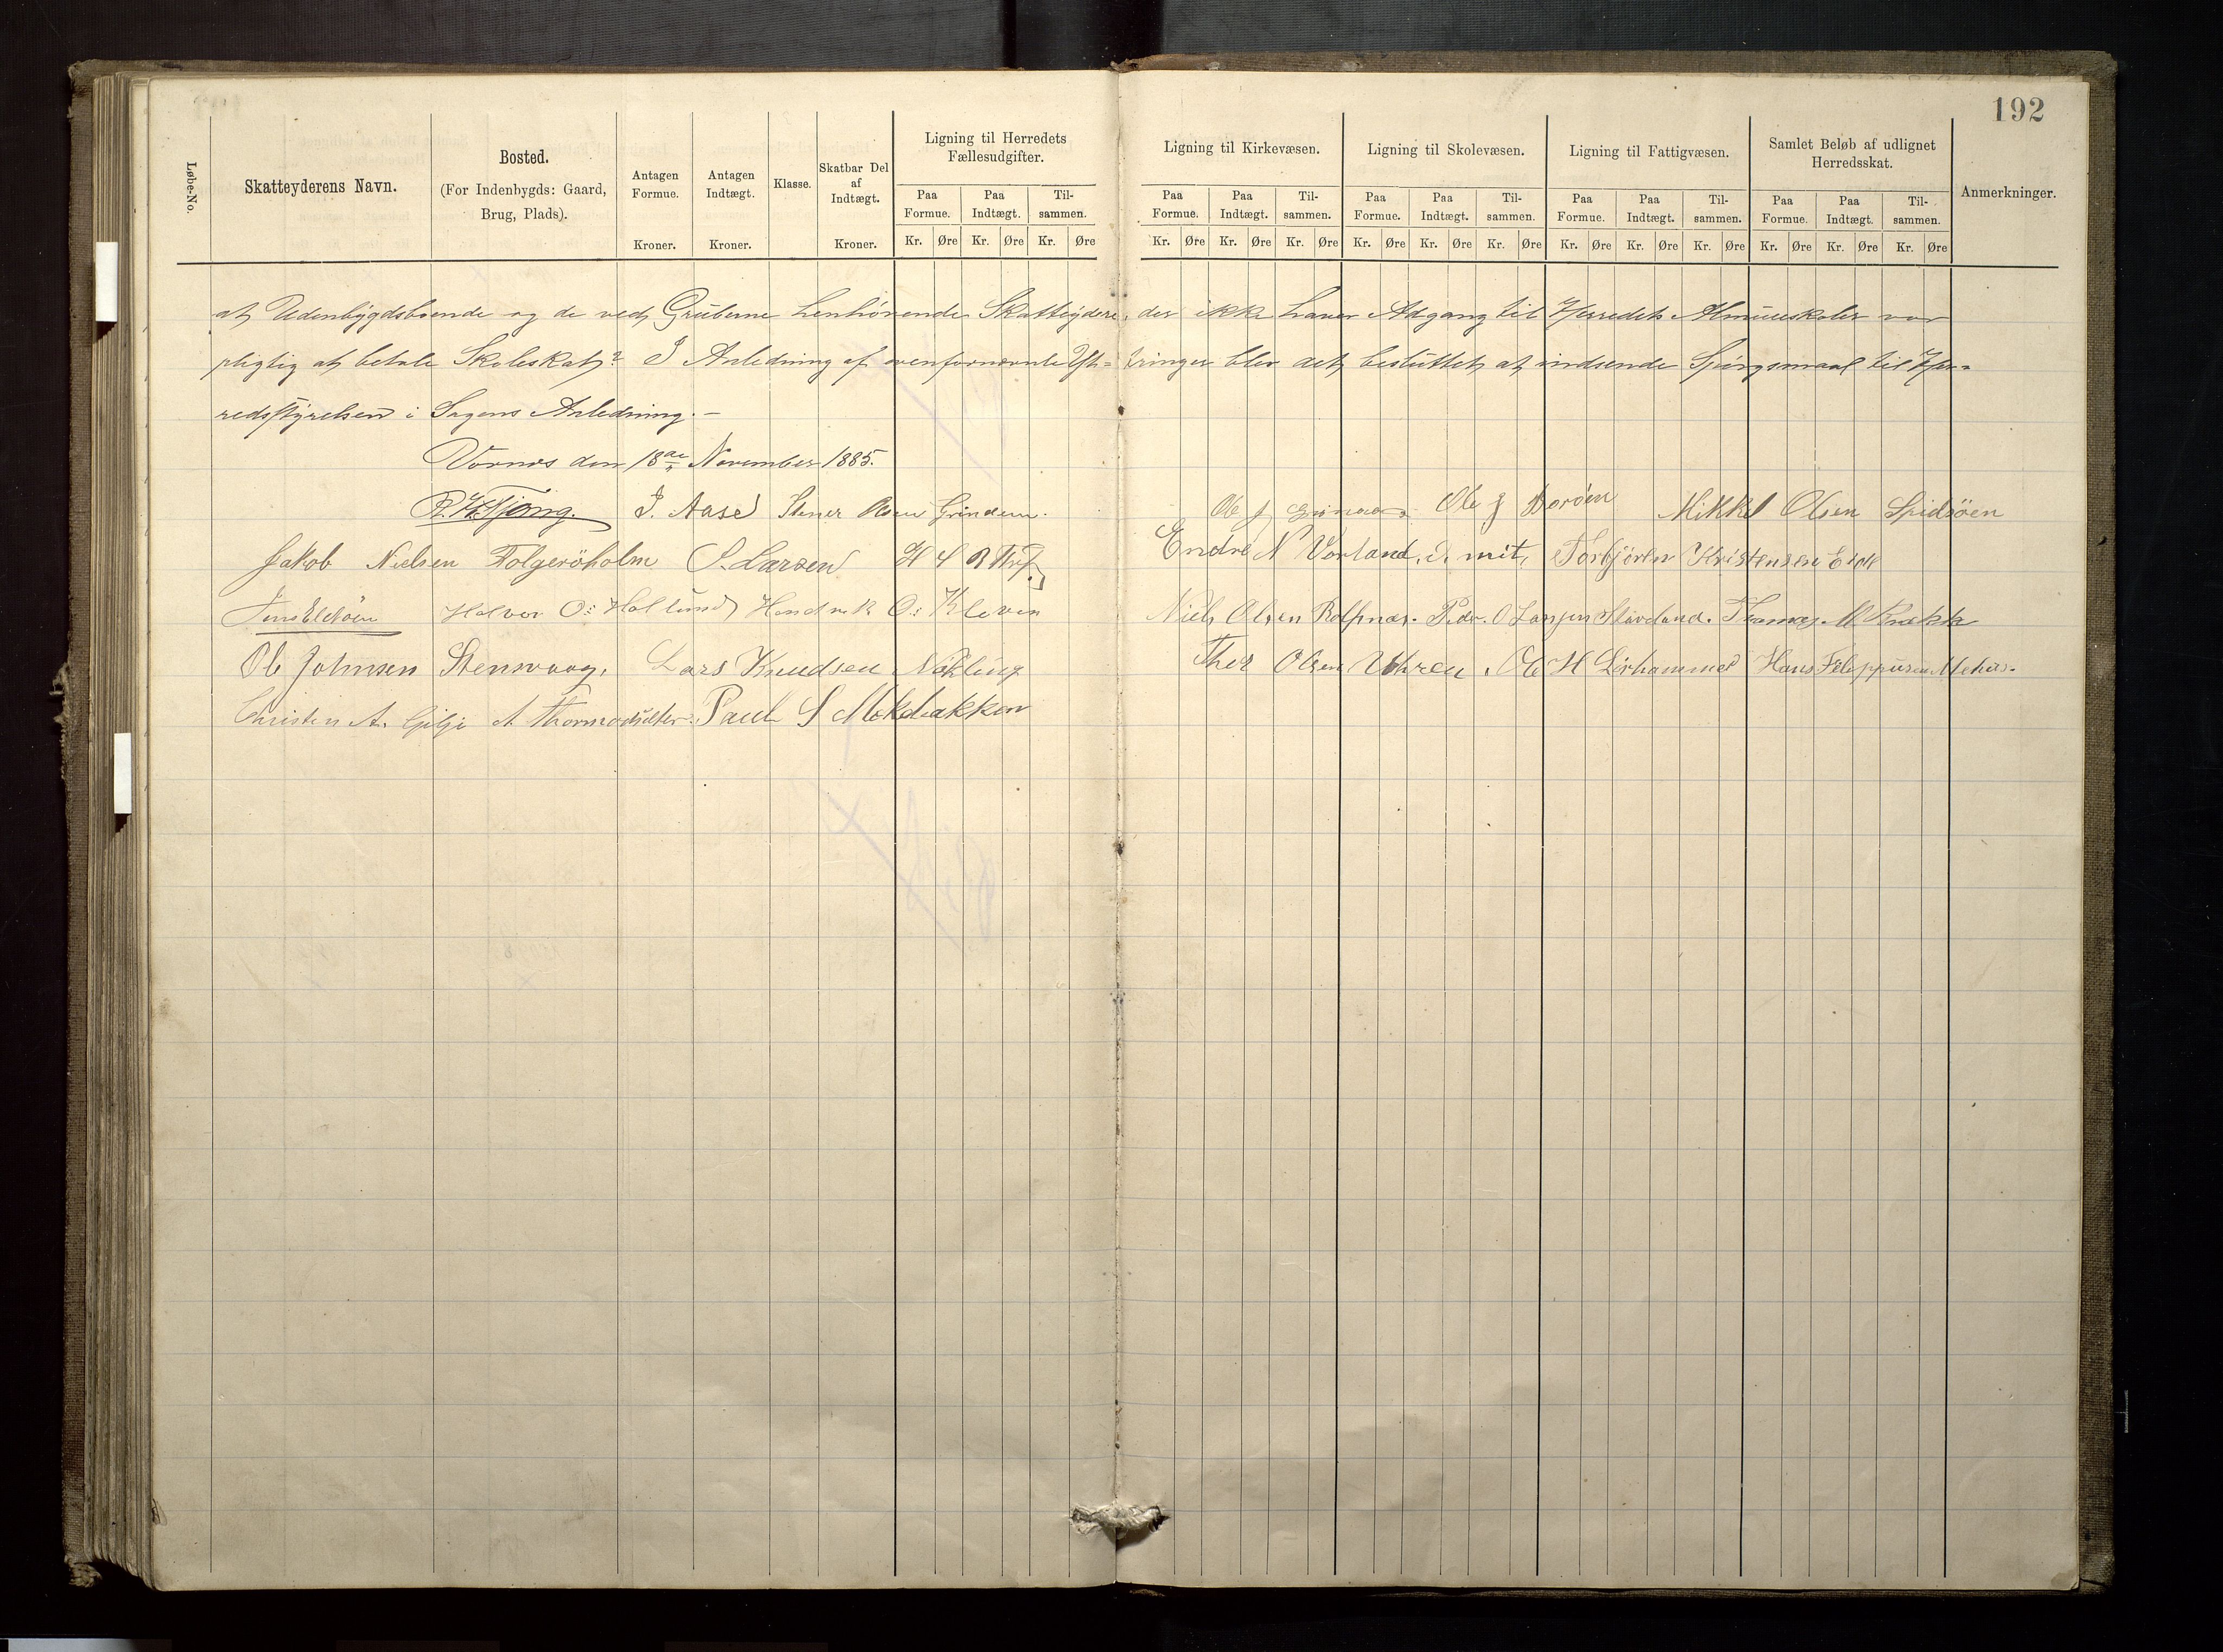 192
Løbe-No.
Skatteyderens Navn.
Bosted.
(For Indenbygds: Gaard,
Brug, Plads).
Antagen
Formue.
Kroner.
Antagen
Indtægt.
Kroner.
Klasse.
Skatbar Del
af
Indtægt.
Kroner.
Ligning til Herredets
Fællesudgifter.
Paa Formue. Paa Indtægt. Til-sammen.
Kr. Øre Kr. Øre Kr. Øre
Ligning til Kirkevæsen.
Paa Formue. Paa Indtægt. Til-sammen.
Kr. Øre Kr. Øre Kr. Øre
Ligning til Skolevæsen.
Paa Formue. Paa Indtægt. Til-sammen.
Kr. Øre Kr. Øre Kr. Øre
Ligning til Fattigvæsen.
Paa Formue. Paa Indtægt. Til-sammen.
Kr. Øre Kr. Øre Kr. Øre
Samlet Beløb af udlignet
Herredsskat.
Paa Formue. Paa Indtægt. Til-sammen.
Kr. Øre Kr. Øre Kr. Øre
Anmerkninger.
at Udenbygdsboende og de ved Gruberne henhørende Skatteydere, der ikke haver Adgang til Herredets Almueskoler var
pligtig at betale Skoleskat? I Anledning af ovenfornævnte blev det besluttet at indsende Spörgsmaal til Her-
redsstyrelsen i Sagens Anledning. –
Vornes den 18de November 1885.
J. Aase Stener Olsen Grindem. Ole J Ole J Borøen Mikkel Olsen Spidsöen
Jakob Nielsen Folgeröholm S. Larsen Endre N Vorland. Torbjören Kristensen Eide
Jens Eldöen Halvor O: Hollund Hendrik O: Kleven Niels Olsen Rolfsnæs. Peder O Larsen Thomas M
Ole Johnsen Stenvaag. Lars Knudsen Nökling Ther Olsen Ole H Hans
Christen A. Gilje A Paul S